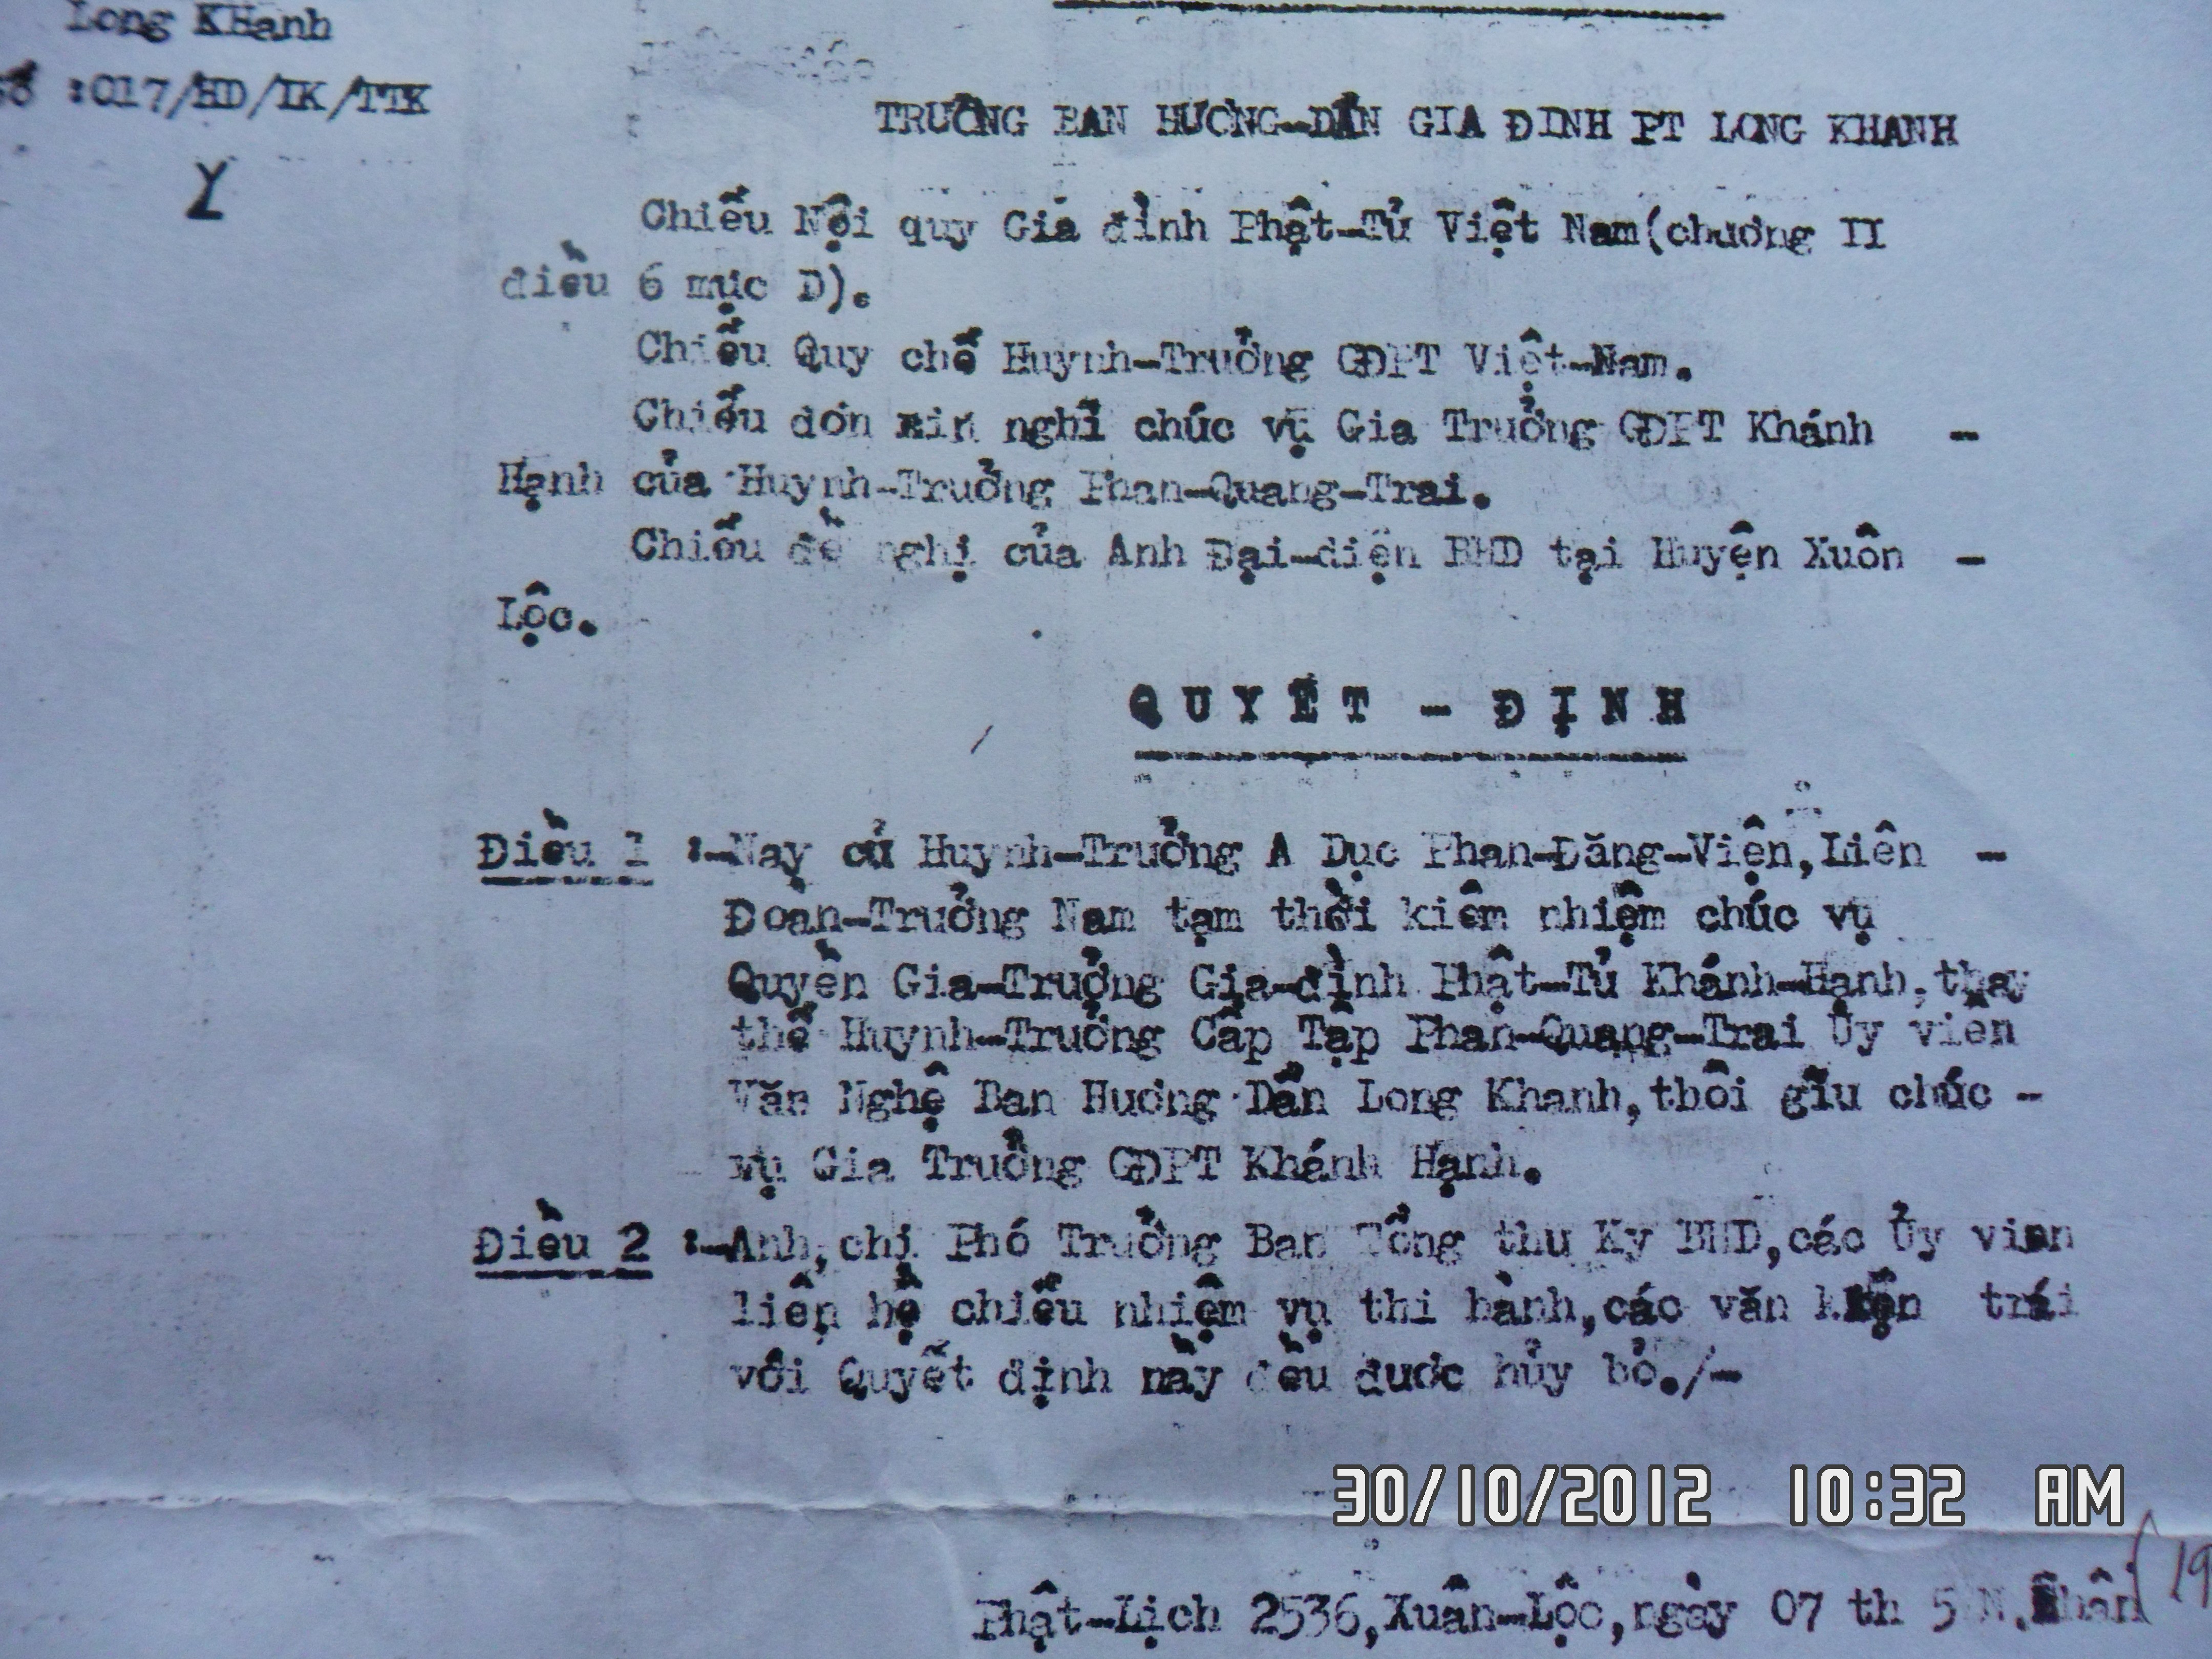 Long KHanh
Số :017/HD/LK/TTK
TRƯỞNG BAN HƯƠNG-DẨN GIA ĐINH PT LONG KHANH
Chiếu Nội quy Gia đình Phật-Tử Việt Nam(chương II
điều 6 mục D).
Chiếu Quy chế Huynh-Trưởng GĐPT Việt-Nam.
Chiếu đơn xin nghĩ chức vụ Gia Trưởng GĐPT Khánh -
Hạnh của Huynh-Trưởng Phan-Quang-Trai.
Chiếu đề nghị của Anh Đại-diện BHD tại Huyện Xuôn -
Lộc.
QUYẾT - ĐỊNH
Điều 1 :-Nay cử Huynh-Trưởng A Dục Phan-Đăng-Viện,Liên -
Đoạn-Trưởng Nam tạm thời kiêm nhiệm chức vụ
Quyền Gia-Trưởng Gia-đình Phật-Tử Khánh-Hạnh,thay
thế Huynh-Trưởng Cấp Tập Phan-Quang-Trai Ủy viên
Văn Nghệ Ban Hương Dẩn Long Khanh,thôi giữ chức -
vụ Gia Trưởng GĐPT Khánh Hạnh.
Điều 2 :-Anh,chị Phó Trưởng Ban Tổng thu Ky BHD,các Ủy vien
liên hệ chiếu nhiệm vụ thi hành,các văn kiện trái
với Quyết định này đều đuơc hủy bỏ./-
30/10/2012 10:32 AM
Phật-Lịch 2536,Xuân-Lộc,ngày 07 th 5 N.Thân(19